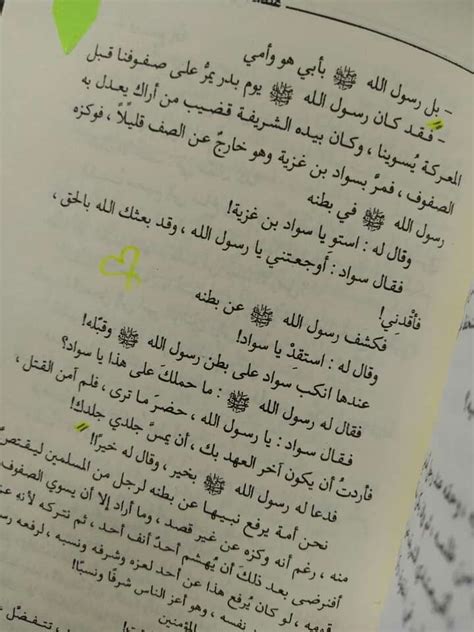 - بل رسول الله ﷺ بأبي هو وأمي
- فقد كان رسول الله ﷺ يوم بدر يمرُّ على صفوفنا قبل
المعركة يُسوينا ، وكان بيده الشريفة قضيب من أراك يعدل به
الصفوف ، فمرَّ بسواد بن غزية وهو خارجٌ عن الصف قليلًا ، فوكزه
رسول الله ﷺ في بطنه
وقال له : استوِ يا سواد بن غزية!
فقال سواد : أوجعتني يا رسول الله ، وقد بعثك الله بالحق ،
فأقدني!
فكشف رسول الله ﷺ عن بطنه
وقال له : استقِدْ يا سواد!
عندها انكب سواد على بطن رسول الله ﷺ وقبَّله!
فقال له رسول الله ﷺ : ما حملكَ على هذا يا سواد؟
فقال سواد : يا رسول الله ، حضرَ ما ترى ، فلم آمن القتل ،
فأردتُ أن يكون آخر العهد بك ، أن يمسَّ جلدي جلدك!
فدعا له رسول الله ﷺ بخير ، وقال له خيرًا!
نحن أمة يرفع نبيها عن بطنه لرجل من المسلمين ليقتصَّ
منه ، رغم أنه وكزه عن غير قصد ، وما أراد إلا أن يسوي الصفوف
أفنرضى بعد ذلك أن يُهشم أحدٌ أنف أحد ، ثم نتركه لأنه
قومه ، لو كان يُرفع هذا عن أحد لعزه وشرفه ونسبه ، لرفعه
نفسه ، وهو أعز الناس شرفًا ونسبًا!
المؤمنين